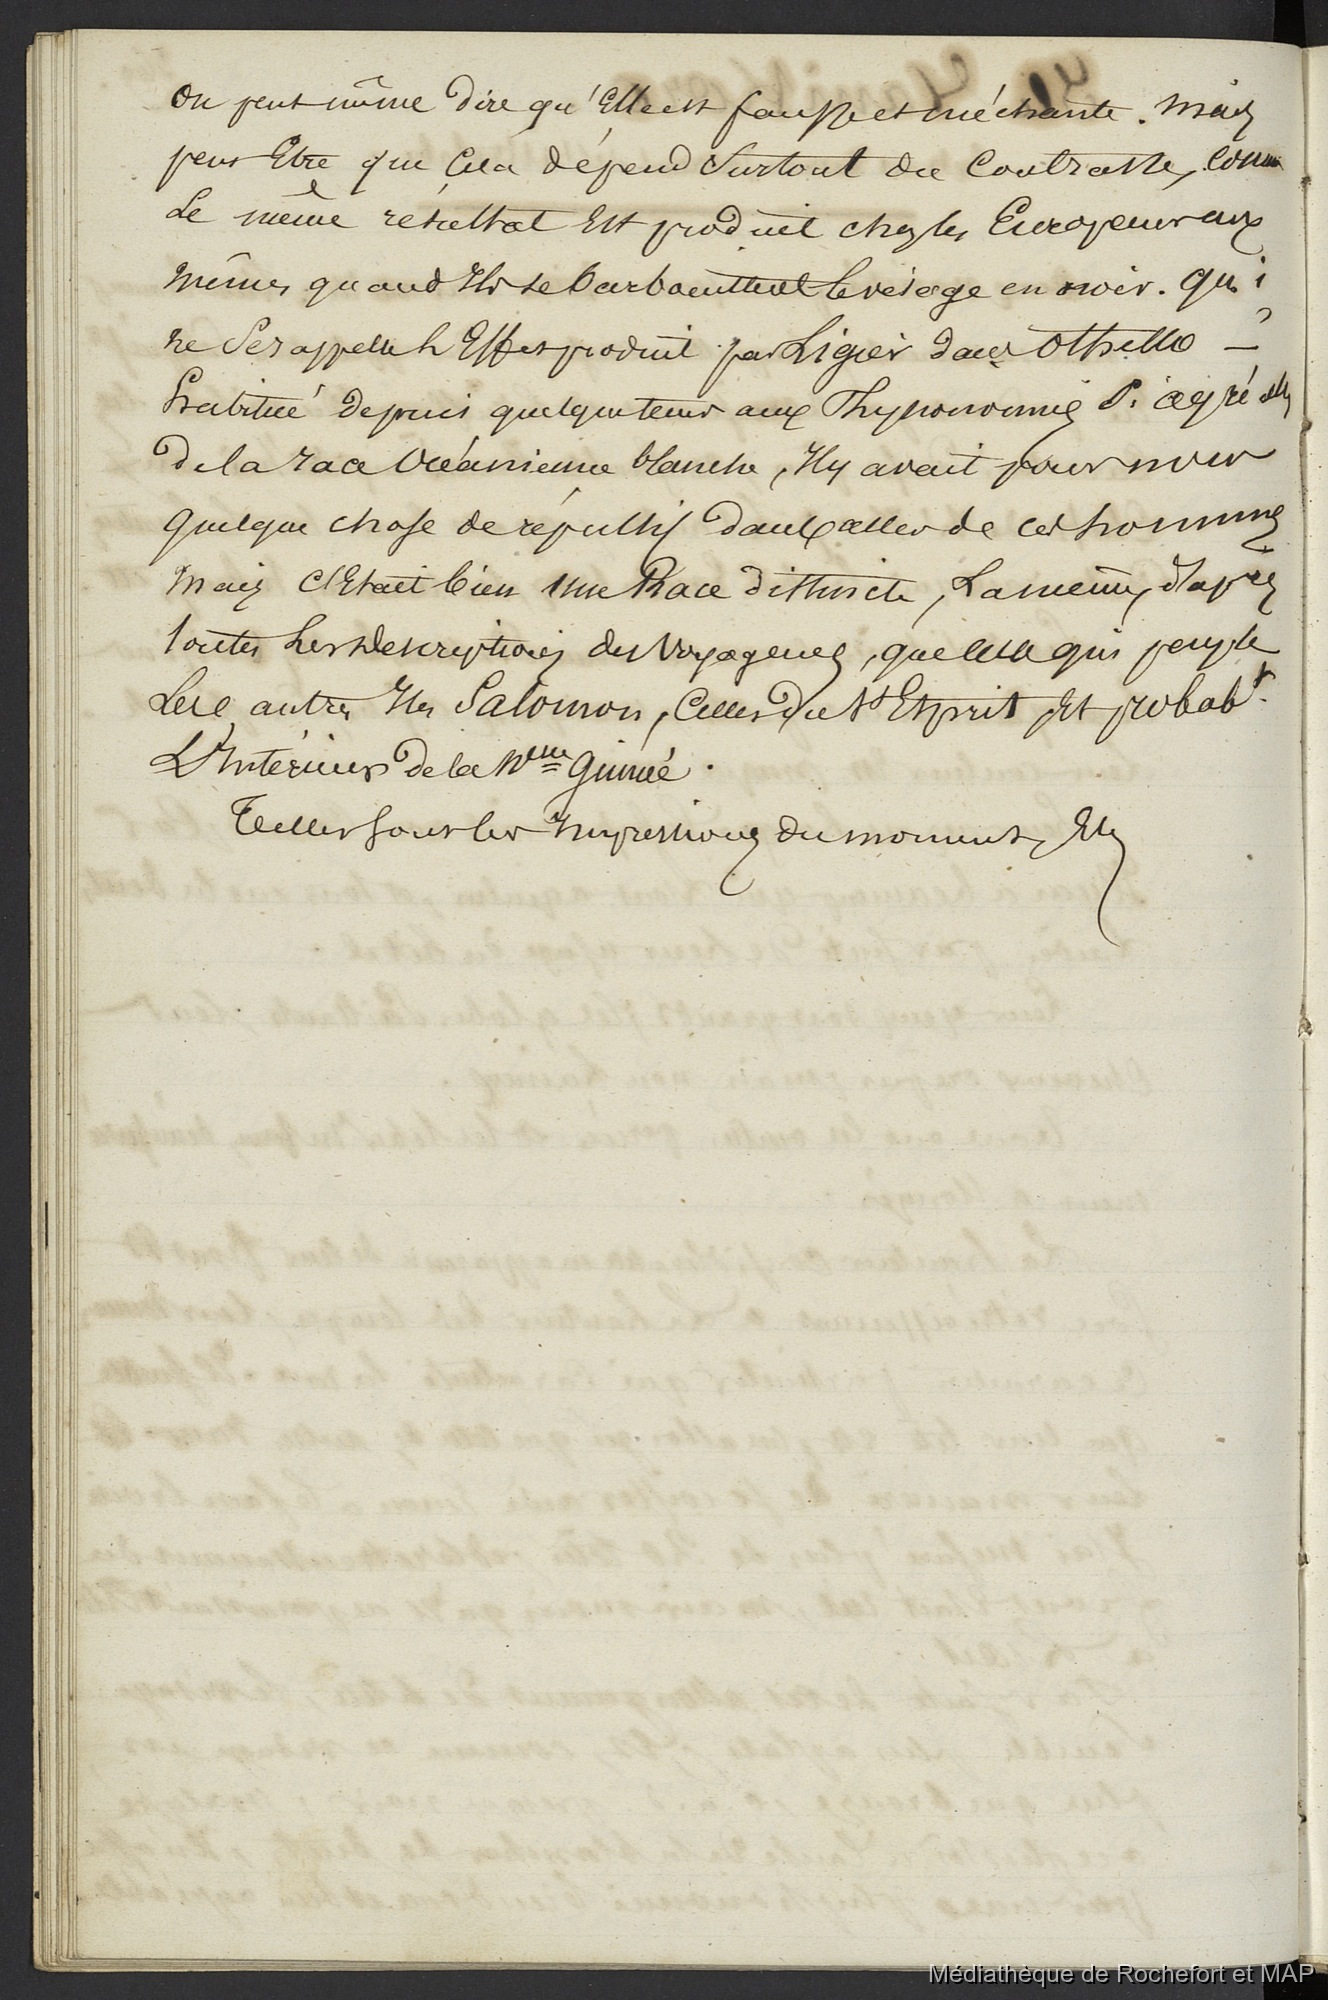 On peut même dire qu'Elle est fausse et méchante. Mais
peut Etre que Cela dépend Surtout du Contraste, comme
Le même résultat Est produit chez les Européens eux
mêmes quand Ils se barbouillent le visage en noir. Qui
ne Se rappelle L'Effet produit par Ligier dans Othello ?
Habitué depuis quelque tems aux Physionomies Si agréables
de la race Océanienne blanche, Il y avait pour nous
quelque chose de répulsif dans celles de ces hommes
Mais c'Etait bien une Race distincte, La même, d'après
toutes Les descriptions des Voyageurs, que celle qui peuple
Les autres Iles Salomon, Celles du St Esprit Et probabt.
L'Intérieur de la Nelle Guinée.
Telles sont les Impressions du moment, Et
Médiathèque de Rochefort et MAP